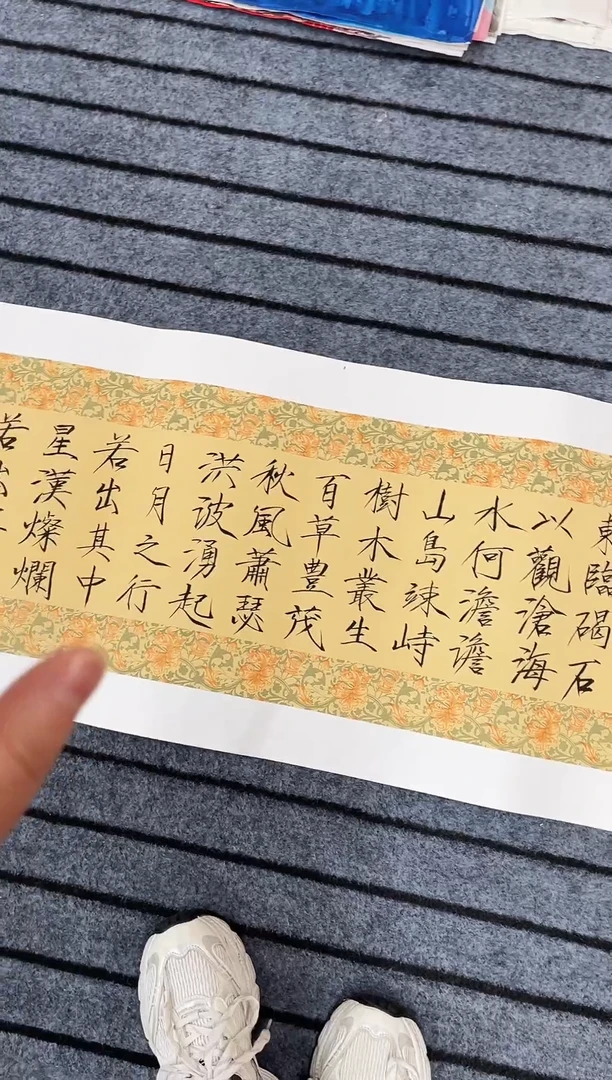 東臨碣石
以觀滄海
水何澹澹
山島竦峙
樹木叢生
百草豊茂
秋風蕭瑟
洪波湧起
日月之行
若出其中
星漢燦爛
若出